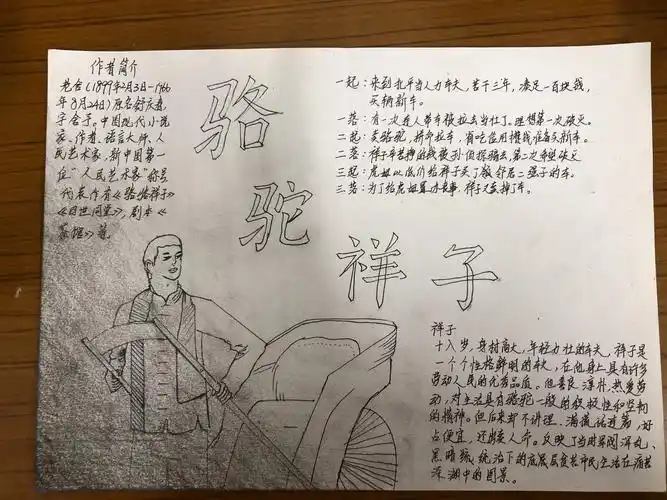 作者简介
老舍(1899年2月3日-1966
年8月24日)原名舒庆春,
字舍予。中国现代小说
家、作者、语言大师、人
民艺术家,新中国第一
位"人民艺术家"称号
代表作有《骆驼祥子》
《四世同堂》,剧本《
茶馆》等
骆
驼
祥子
一起:来到北平当人力车夫,苦干三年,凑足一百块钱,
买辆新车。
一落:有一次连人带车被拉去当壮丁。理想第一次破灭。
二起:卖骆驼,拼命拉车,省吃俭用攒钱准备买新车。
二落:祥子辛苦挣的钱被孙侦探骗去,第二次希望破灭
三起:虎妞以低价给祥子买了邻居二强子的车。
三落:为了给虎妞置办丧事,祥子又卖掉了车。
祥子
十八岁,身材高大,年轻力壮的车夫,祥子是
一个个性格鲜明的车夫,在他身上具有许多
劳动人民的优秀品质。他善良淳朴,热爱劳
动,对生活具有骆驼一般的积极性和坚韧
的精神。但后来却不讲理,满嘴谎,好
占便宜,还出卖人命。反映了当时军阀混乱、
黑暗统治下的底层贫苦市民生活在痛苦
深渊中的图景。